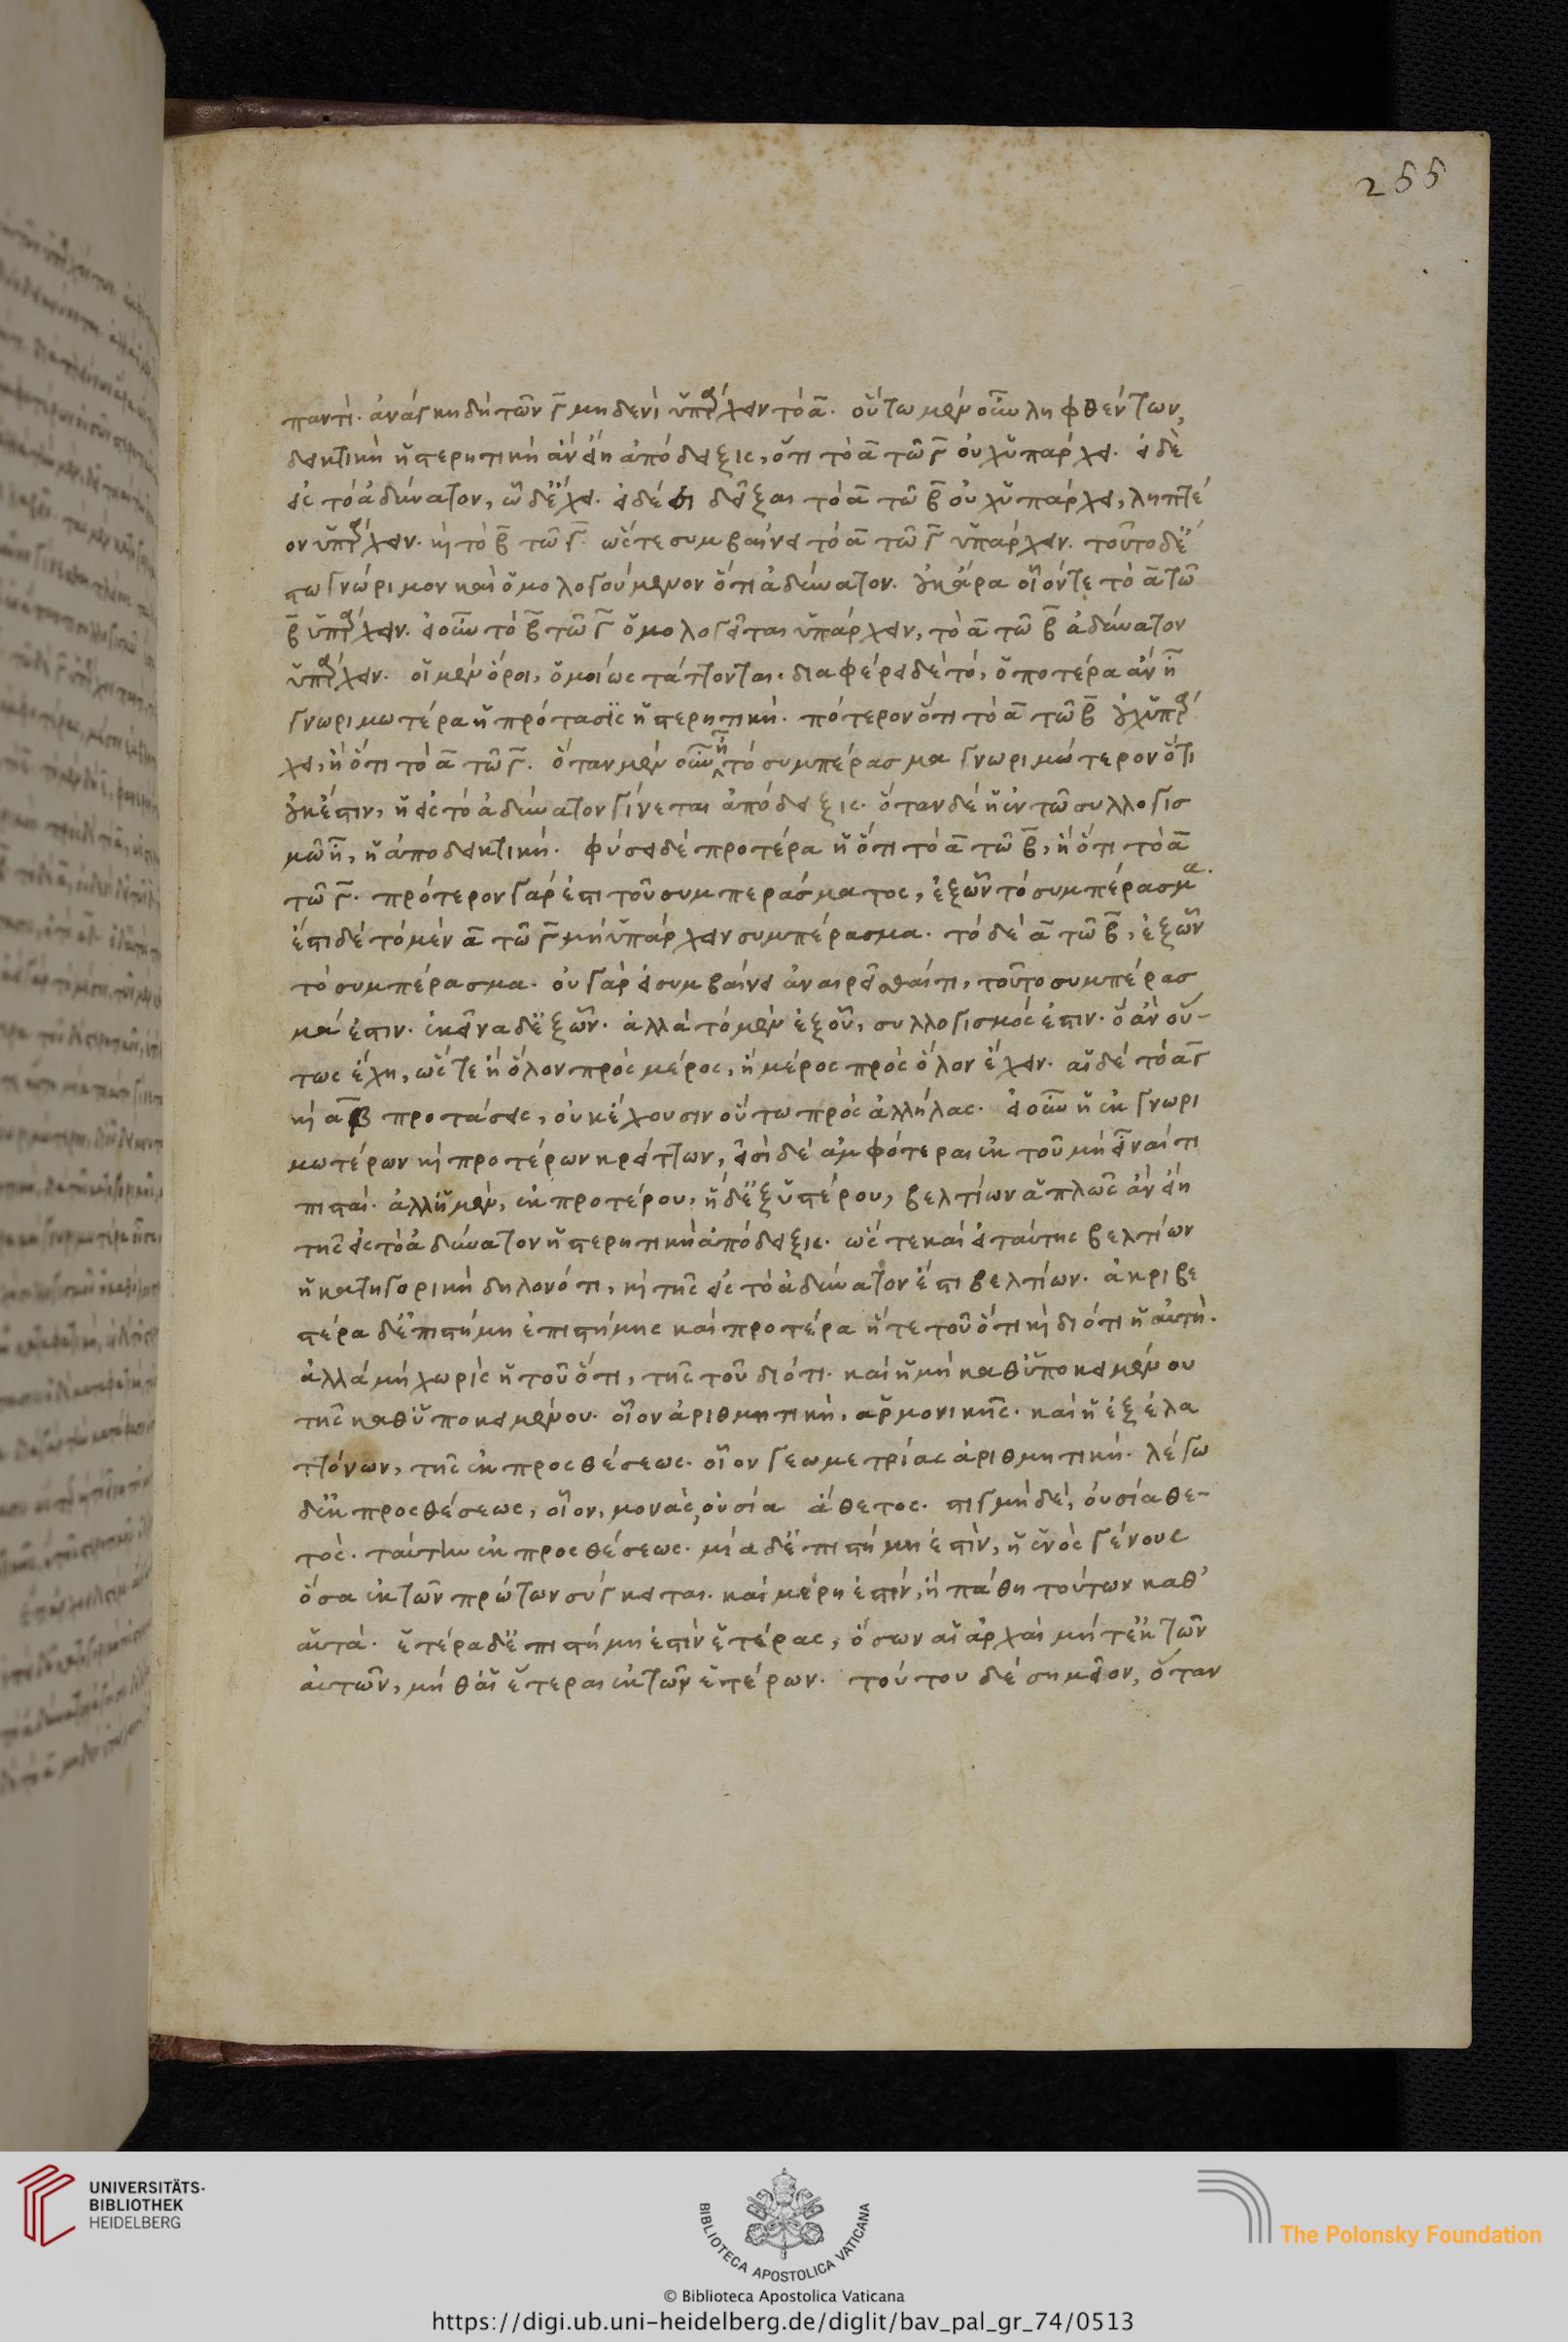 255
παντί. ἀνάγκη δὴ τῶν γ̄ μηδενὶ ὑπάρχειν τὸ ᾱ. οὕτω μὲν οὖν ληφθέντων,
δεικτικὴ ἡ στερητικὴ ἂν εἴη ἀπόδειξις, ὅτι τὸ ᾱ τῶ γ̄ οὐχ ὑπάρχει. ἡ δὲ
εἰς τὸ ἀδύνατον, ὧδ' ἔχει. εἰ δέοι δεῖξαι τὸ ᾱ τῶ β̄ οὐχ ὑπάρχει, ληπτέ
ον ὑπάρχειν. κ̀ τὸ β̄ τῶ γ̄. ὥστε συμβαίνει τὸ ᾱ τῶ γ̄ ὑπάρχειν. τοῦτο δ' ἔ
στω γνώριμον καὶ ὁμολογούμενον ὅτι ἀδύνατον. οὐκ ἄρα οἷόν τε τὸ ᾱ τῶ
β̄ ὑπάρχειν. εἰ οὖν τὸ β̄ τῶ γ̄ ὁμολογεῖται ὑπάρχειν, τὸ ᾱ τῶ β̄ ἀδύνατον
ὑπάρχειν. οἱ μὲν ὅροι, ὁμοίως τάττονται. διαφέρει δὲ τό, ὁποτέρα ἂν ἦ
γνωριμωτέρα ἡ πρότασις ἡ στερητική. πότερον ὅτι τὸ ᾱ τῶ β̄ οὐχ ὑπάρ
χει, ἢ ὅτι τὸ ᾱ τῶ γ̄. ὅταν μὲν οὖν ἦ τὸ συμπέρασμα γνωριμώτερον ὅτι
οὐκ ἔστιν, ἡ εἰς τὸ ἀδύνατον γίνεται ἀπόδειξις. ὅταν δὲ ἡ ἐν τῶ συλλογισ
μῶ ἦ, ἡ ἀποδεικτική. φύσει δὲ προτέρα ἡ ὅτι τὸ ᾱ τῶ β̄, ἢ ὅτι τὸ ᾱ
τῶ γ̄. πρότερον γάρ ἐστι τοῦ συμπεράσματος, ἐξ ὧν τὸ συμπέρασμα.
ἔστι δὲ τὸ μὲν ᾱ τῶ γ̄ μὴ ὑπάρχειν συμπέρασμα. τὸ δὲ ᾱ τῶ β̄, ἐξ ὧν
τὸ συμπέρασμα. οὐ γὰρ εἰ συμβαίνει ἀναιρεῖσθαί τι, τοῦτο συμπέρασ
μά ἐστιν. ἐκεῖνα δ' ἐξ ὧν. ἀλλὰ τὸ μὲν ἐξ οὗ, συλλογισμός ἐστιν. ὃ ἂν οὕ-
τως ἔχη, ὥστε ἢ ὅλον πρὸς μέρος, ἢ μέρος πρὸς ὅλον ἔχειν. αἱ δὲ τὸ αγ
κ̀ ᾱβ προτάσεις, οὐκ ἔχουσιν οὕτω πρὸς ἀλλήλας. εἰ οὖν ἡ ἐκ γνωρι
μωτέρων κ̀ προτέρων κρείττων, εἰσὶ δὲ ἀμφότεραι ἐκ τοῦ μὴ εἶναί τι
πισταί. ἀλλ' ἡ μὲν, ἐκ προτέρου, ἡ δ' ἐξ ὑστέρου, βελτίων ἁπλῶς ἂν εἴη
τῆς εἰς τὸ ἀδύνατον ἡ στερητικὴ ἀπόδειξις. ὥστε καὶ εἰ ταύτης βελτίων
ἡ κατηγορικὴ δηλονότι, κ̀ τῆς εἰς τὸ ἀδύνατόν ἐστι βελτίων. ἀκριβε
στέρα δ' ἐπιστήμη ἐπιστήμης καὶ προτέρα ἥ τε τοῦ ὅτι κ̀ διότι ἡ αὐτή.
ἀλλὰ μὴ χωρὶς ἡ τοῦ ὅτι, τῆς τοῦ διότι. καὶ ἡ μὴ καθ' ὑποκειμένου
τῆς καθ' ὑποκειμένου. οἷον ἀριθμητικὴ, ἁρμονικῆς. καὶ ἡ ἐξ ἐλα
ττόνων, τῆς ἐκ προσθέσεως. οἷον γεωμετρίας ἀριθμητική. λέγω
δ' ἐκ προσθέσεως, οἷον, μονὰς, οὐσία ἄθετος. στιγμὴ δὲ, οὐσία θε-
τός. ταύτην ἐκ προσθέσεως. μία δ' ἐπιστήμη ἐστὶν, ἡ ἑνὸς γένους
ὅσα ἐκ τῶν πρώτων σύγκειται. καὶ μέρη ἐστίν, ἢ πάθη τούτων καθ'
αὑτά. ἑτέρα δ' ἐπιστήμη ἐστὶν ἑτέρας, ὅσων αἱ ἀρχαὶ μήτ' ἐκ τῶν
αὐτῶν, μήθ' αἱ ἕτεραι ἐκ τῶν ἑτέρων. τούτου δὲ σημεῖον, ὅταν
UNIVERSITÄTS-
BIBLIOTHEK
HEIDELBERG
BIBLIOTECA APOSTOLICA VATICANA
The Polonsky Foundation
© Biblioteca Apostolica Vaticana
https://digi.ub.uni-heidelberg.de/diglit/bav_pal_gr_74/0513